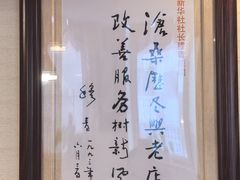 新华社社长穆青
沧桑历尽兴老店
改善服务树新风
穆青
一九九三年
六月三日